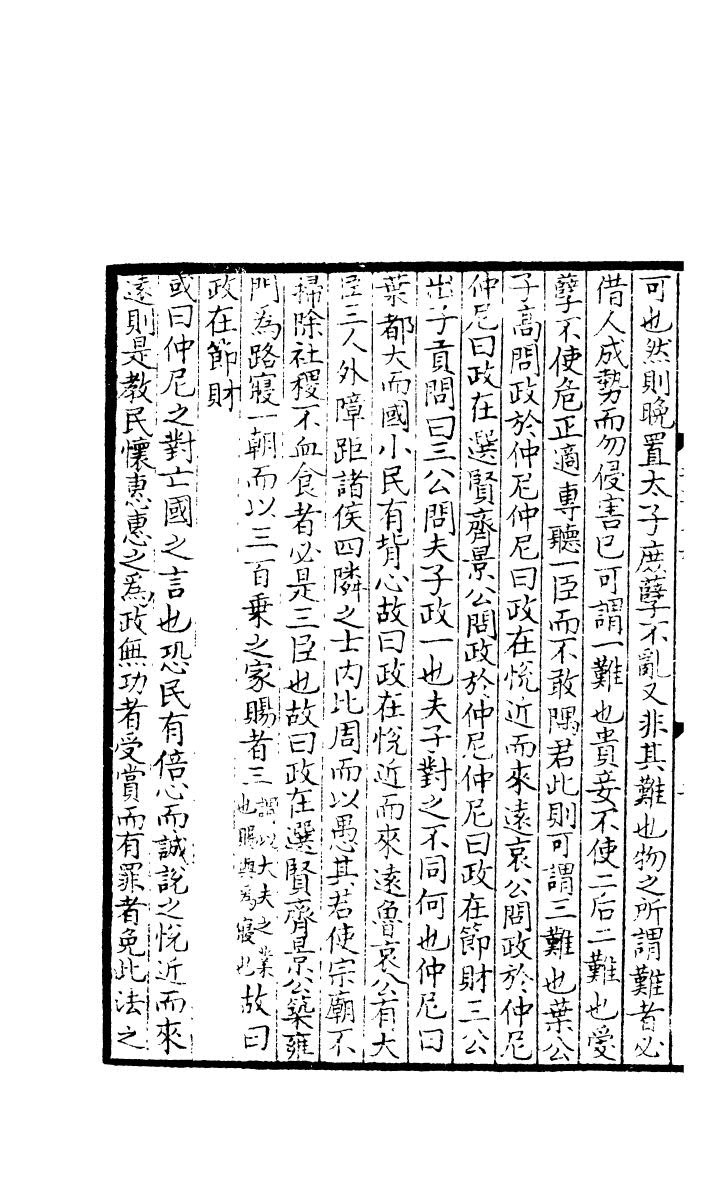 可也然則晚置太子庶孽不亂又非其難也物之所謂難者必
借人成勢而勿侵害已可謂一難也貴妾不使二后二難也愛
孽不使危正適專聽一臣而不敢隅君此則可謂三難也葉公
子高問政於仲尼仲尼曰政在悅近而來遠哀公問政於仲尼
仲尼曰政在選賢齊景公問政於仲尼仲尼曰政在節財三公
出子貢問曰三公問夫子政一也夫子對之不同何也仲尼曰
葉都大而國小民有背心故曰政在悅近而來遠魯哀公有大
臣三人外障距諸侯四隣之士内比周而以愚其君使宗廟不
掃除社稷不血食者必是三臣也故曰政在選賢齊景公築雍
門為路寢一朝而以三百乘之家賜者三謂以大夫之業也賜與為寢也故曰
政在節財
或曰仲尼之對亡國之言也恐民有倍心而誠說之悅近而來
遠則是教民懷惠惠之為政無功者受賞而有罪者免此法之